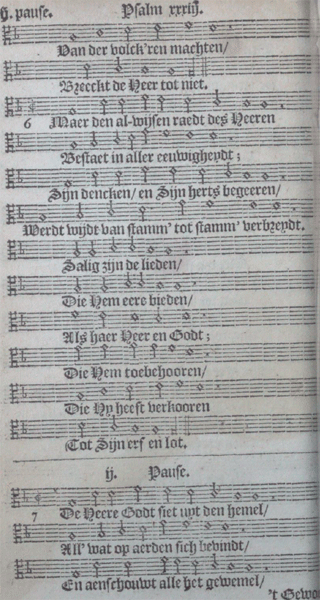 ij. pause. Psalm xxxiij.
Van der volck'ren machten/
Breeckt de Heer tot niet.
6 Maer den al-wijsen raedt des Heeren
Bestaet in aller eeuwigheydt;
Sijn dencken/ en Sijn herts begeeren/
Werdt wijdt van stamm' tot stamm' verbreydt.
Salig zijn de lieden/
Die Hem eere bieden/
Als haer Heer en Godt;
Die Hem toebehooren/
Die Hy heeft verkooren
Tot Sijn erf en lot.
ij. Pause.
7 De Heere Godt siet uyt den hemel/
All' wat op aerden sich bevindt/
En aenschouwt alle het gewemel/
't Gewo